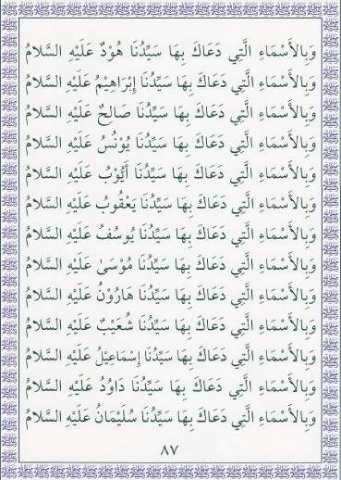 وَبِالأَسْمَاءِ الَّتِي دَعَاكَ بِهَا سَيِّدُنَا هُودٌ عَلَيْهِ السَّلامُ
وَبِالأَسْمَاءِ الَّتِي دَعَاكَ بِهَا سَيِّدُنَا إِبْرَاهِيْمُ عَلَيْهِ السَّلامُ
وَبِالأَسْمَاءِ الَّتِي دَعَاكَ بِهَا سَيِّدُنَا صَالِحٌ عَلَيْهِ السَّلامُ
وَبِالأَسْمَاءِ الَّتِي دَعَاكَ بِهَا سَيِّدُنَا يُوْنُسُ عَلَيْهِ السَّلامُ
وَبِالأَسْمَاءِ الَّتِي دَعَاكَ بِهَا سَيِّدُنَا أَيُّوْبُ عَلَيْهِ السَّلامُ
وَبِالأَسْمَاءِ الَّتِي دَعَاكَ بِهَا سَيِّدُنَا يَعْقُوبُ عَلَيْهِ السَّلامُ
وَبِالأَسْمَاءِ الَّتِي دَعَاكَ بِهَا سَيِّدُنَا يُوسُفُ عَلَيْهِ السَّلامُ
وَبِالأَسْمَاءِ الَّتِي دَعَاكَ بِهَا سَيِّدُنَا مُوْسَىٰ عَلَيْهِ السَّلامُ
وَبِالأَسْمَاءِ الَّتِي دَعَاكَ بِهَا سَيِّدُنَا هَارُوْنُ عَلَيْهِ السَّلامُ
وَبِالأَسْمَاءِ الَّتِي دَعَاكَ بِهَا سَيِّدُنَا شُعَيْبٌ عَلَيْهِ السَّلامُ
وَبِالأَسْمَاءِ الَّتِي دَعَاكَ بِهَا سَيِّدُنَا إِسْمَاعِيْلُ عَلَيْهِ السَّلامُ
وَبِالأَسْمَاءِ الَّتِي دَعَاكَ بِهَا سَيِّدُنَا دَاوُدُ عَلَيْهِ السَّلامُ
وَبِالأَسْمَاءِ الَّتِي دَعَاكَ بِهَا سَيِّدُنَا سُلَيْمَانُ عَلَيْهِ السَّلامُ
٨٧